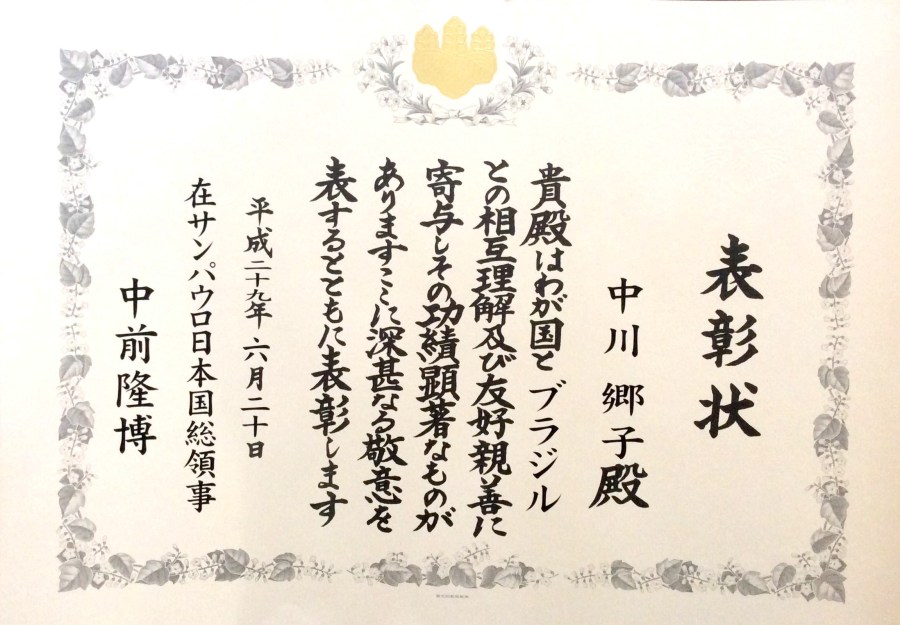 表彰状
中川郷子殿
貴殿はわが国とブラジル
との相互理解及び友好親善に
寄与しその功績顕著なものが
ありますここに深甚なる敬意を
表するとともに表彰します
平成二十九年六月二十日
在サンパウロ日本国総領事
中前隆博